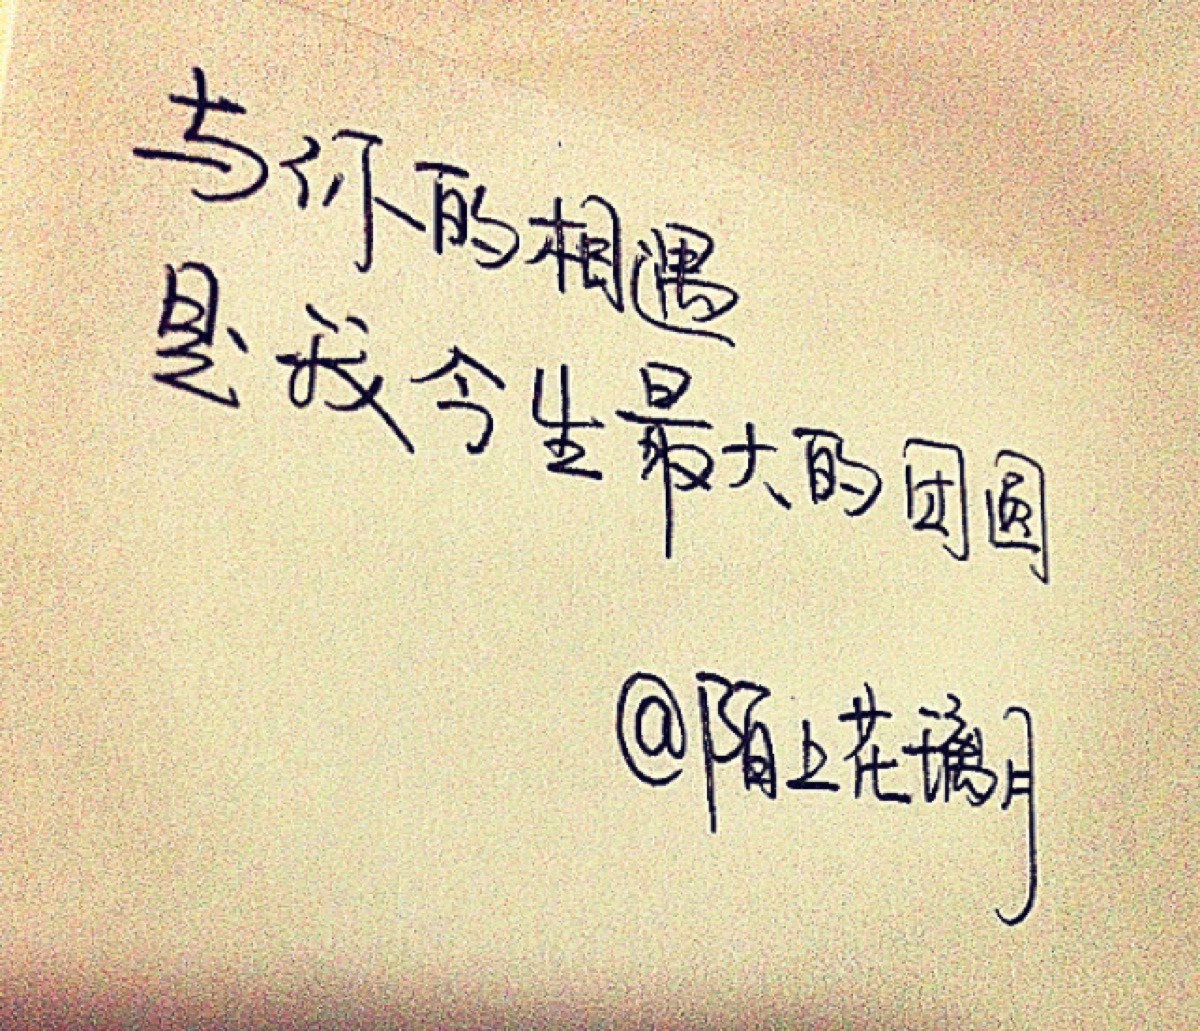 与你的相遇
是我今生最大的团圆
@陌上花璃月